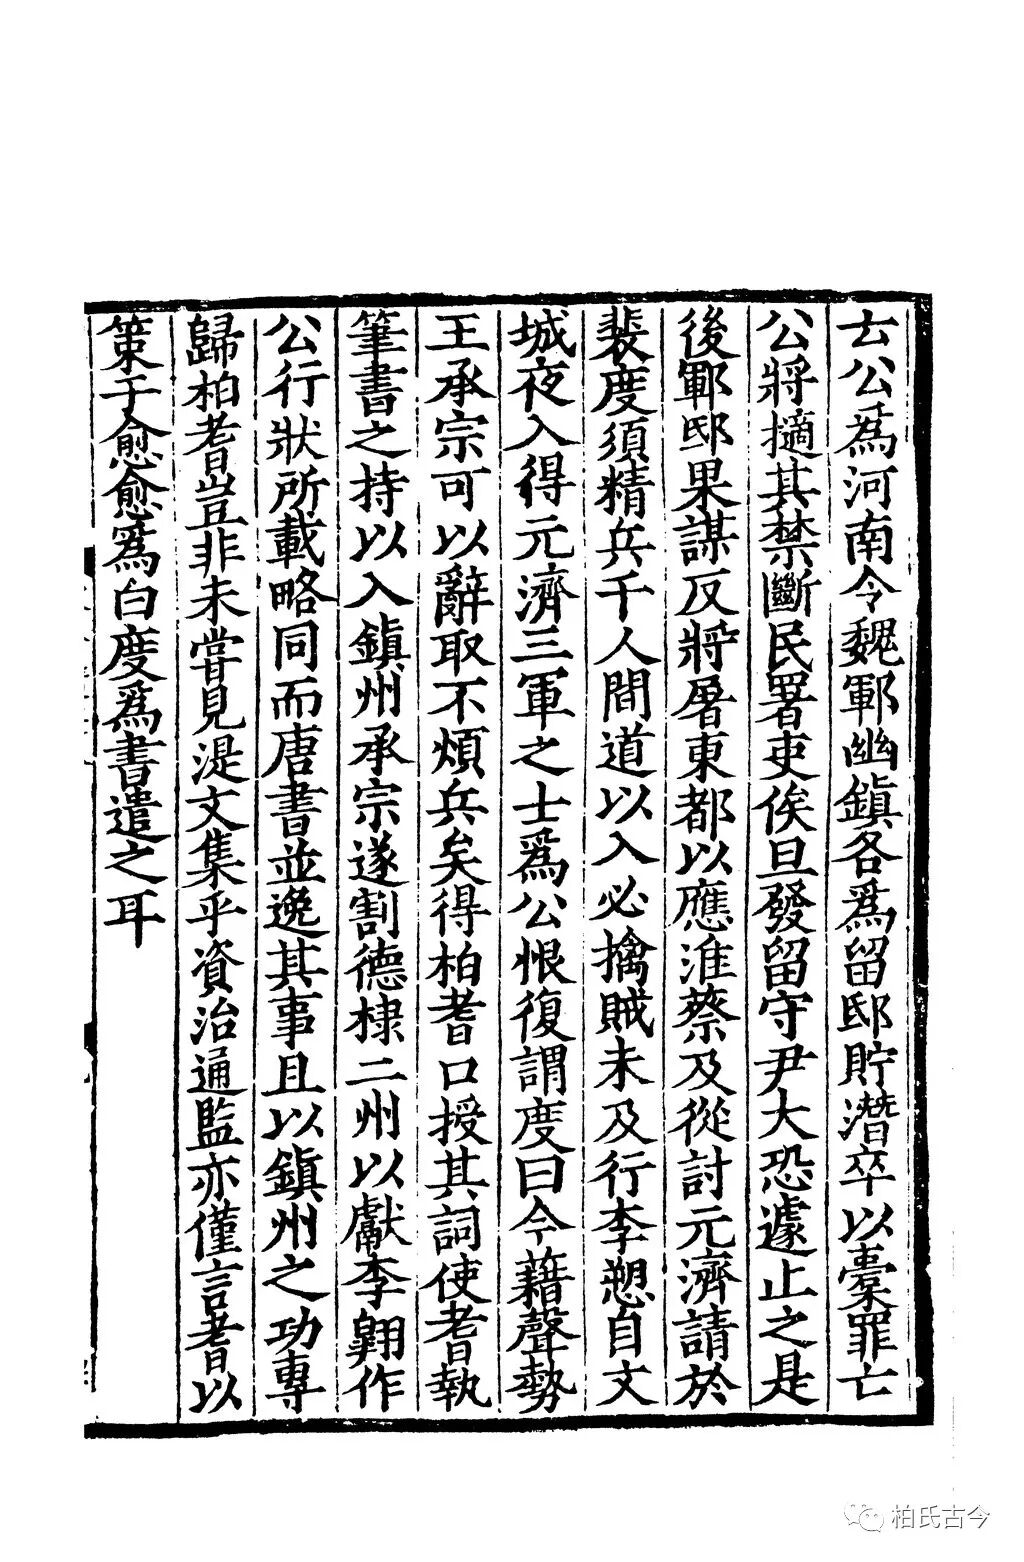 云公為河南令魏鄆幽鎮各為留邸貯潛卒以橐罪亡
公將擿其禁斷民署吏俟旦發留守尹大恐遽止之是
後鄆邸果謀反將屠東都以應淮蔡及從討元濟請於
裴度須精兵千人間道以入必擒賊未及行李愬自文
城夜入得元濟三軍之士為公恨復謂度曰今藉聲勢
王承宗可以辭取不煩兵矣得柏耆口授其詞使耆執
筆書之持以入鎮州承宗遂割德棣二州以獻李翱作
公行狀所載略同而唐書並逸其事且以鎮州之功專
歸柏耆豈非未嘗見湜文集乎資治通監亦僅言耆以
策于愈愈為白度為書遣之耳
柏氏古今